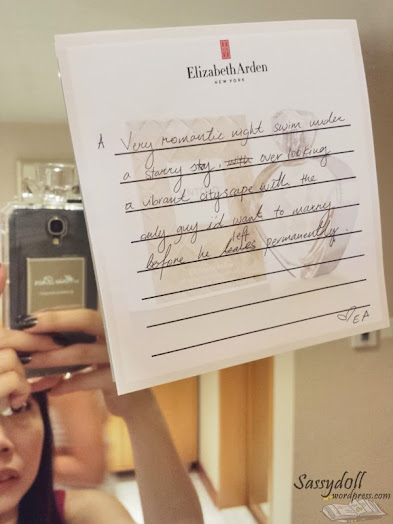 ElizabethArden
NEW YORK
A Very romantic night swim under
a starry sky, with over looking
a vibrand cityscape with the
only guy i'd want to marry
left
Before he leaves permanently.
EA
Sassydoll
wordpress.com